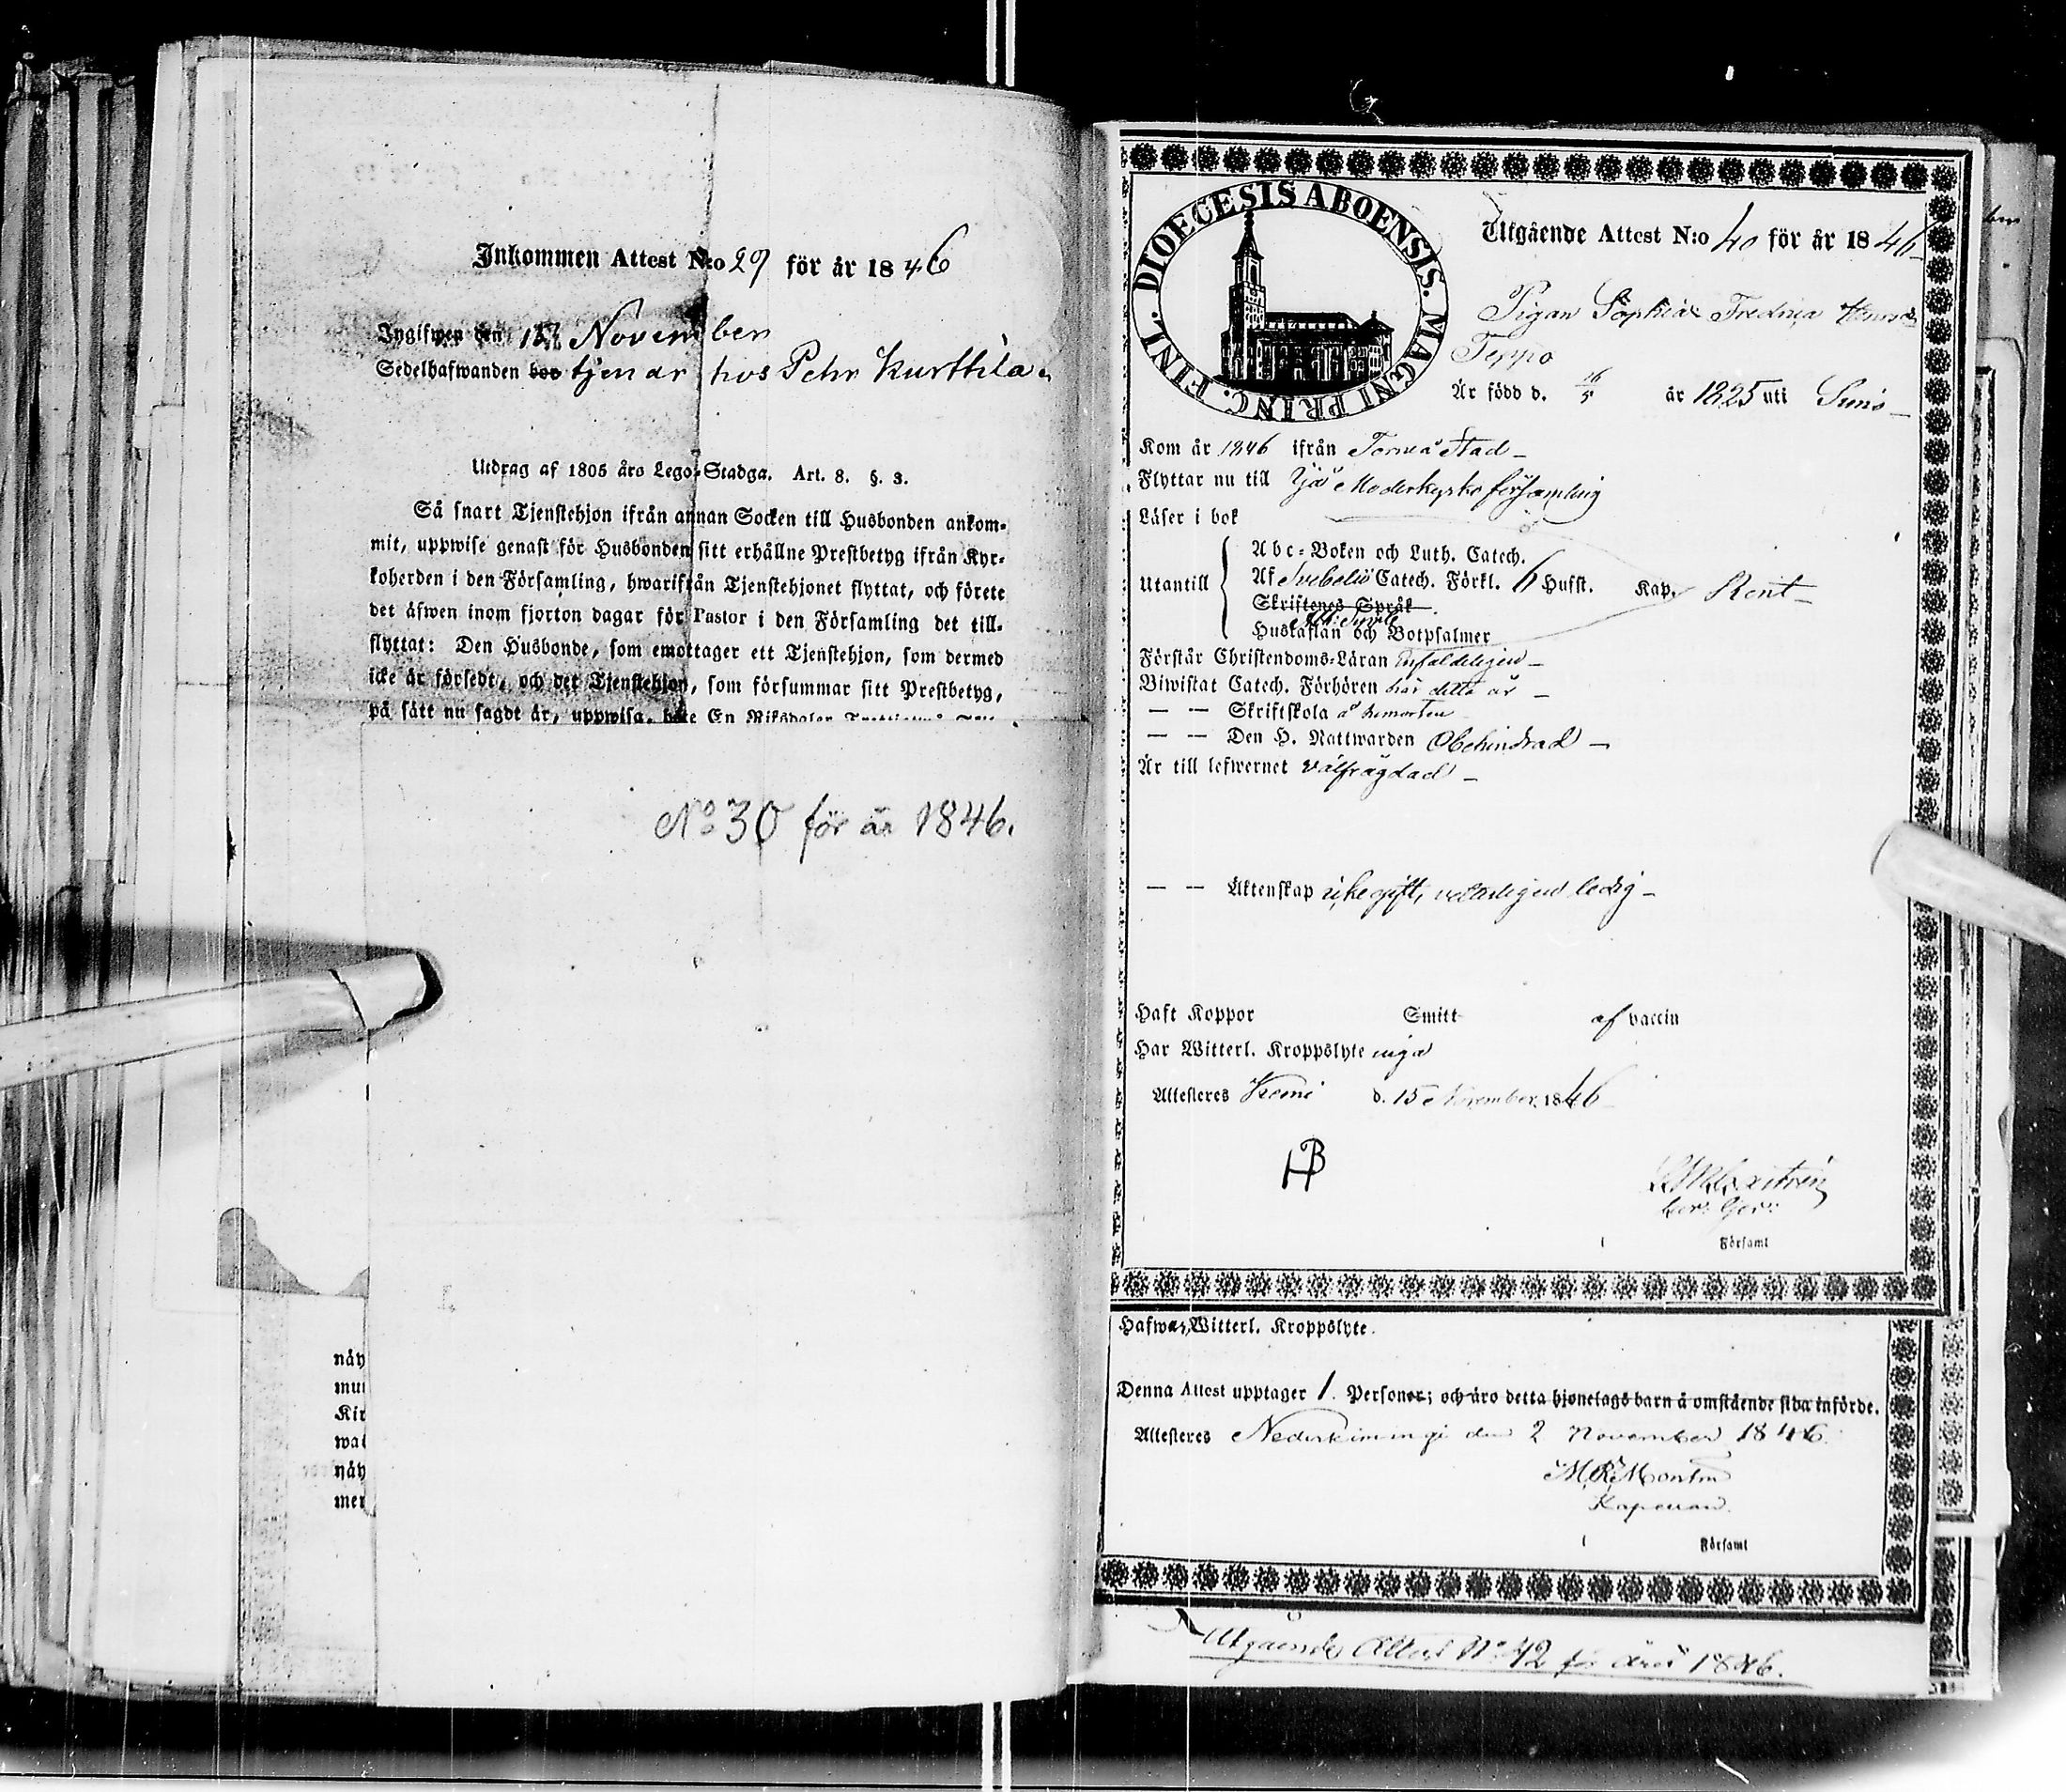 Inkommen Attest N:o 29 för år 1846
Ingifwen den November
Sedelhafwanden hos tjenar hos Pehr Kurthila
Utdrag af 1805 års Lego-Stadga. Art. 8. §. 3.
Så snart Tjenstehjon ifrån annan Socken till Husbonden ankom-
mit, uppwise genast för Husbonden sitt erhållne Prestbetyg ifrån Kyr-
koherden i den Församling, hwarifrån Tjenstehjonet flyttat, och förete
det äfwen inom fjorton dagar för Pastor i den Församling det till-
flyttat: Den Husbonde, som emottager ett Tjenstehjon, som dermed
icke är försedt, och det Tjenstehjon, som försummar sitt Prestbetyg,
på sätt nu sagdt är, uppwisa, böte En Riksdaler
No 30 för år 1846.
näy
mu
Kir
wa
näy
mer
DIOECESIS ABOENSIS. MAGNI PRINC. FINL.
Utgående Attest N:o 40 för år 1846
Pigan Sophia Fredrica
Teppo
Är född d. 16/5 år 1825 uti Simo
Kom år 1846 ifrån Torneå Stad
Flyttar nu till Ijo Moderkyrko församling
Läser i bok
Utantill
Abc-Boken och Luth. Catech.
Af Svebelii Catech. Förkl. 6 Husst. Kap. Rent
Skriftenes Språk
Hustaflan och Botpsalmer
Förstår Christendoms-Läran Enfaldeligen
Biwistat Catech. Förhören här detta år
— — Skriftskola
— — Den H. Nattwarden Obehindrad
Är till lefwernet välfrägdad
— — Äktenskap icke gift, veterligen ledig
Haft Koppor Smitt af vaccin
Har Witterl. Kroppslyte inga
Attesteres Kemi d. 15 November 1846
HB
Församl
Hafwa Witterl. Kroppslyte.
Denna Attest upptager 1. Personer; och äro detta hjonelags barn å omstående sida införde.
Attesteres Nederkiimingi den 2 November 1846.
Kapellan
Församl
Utgående Attest No 42 för året 1846.